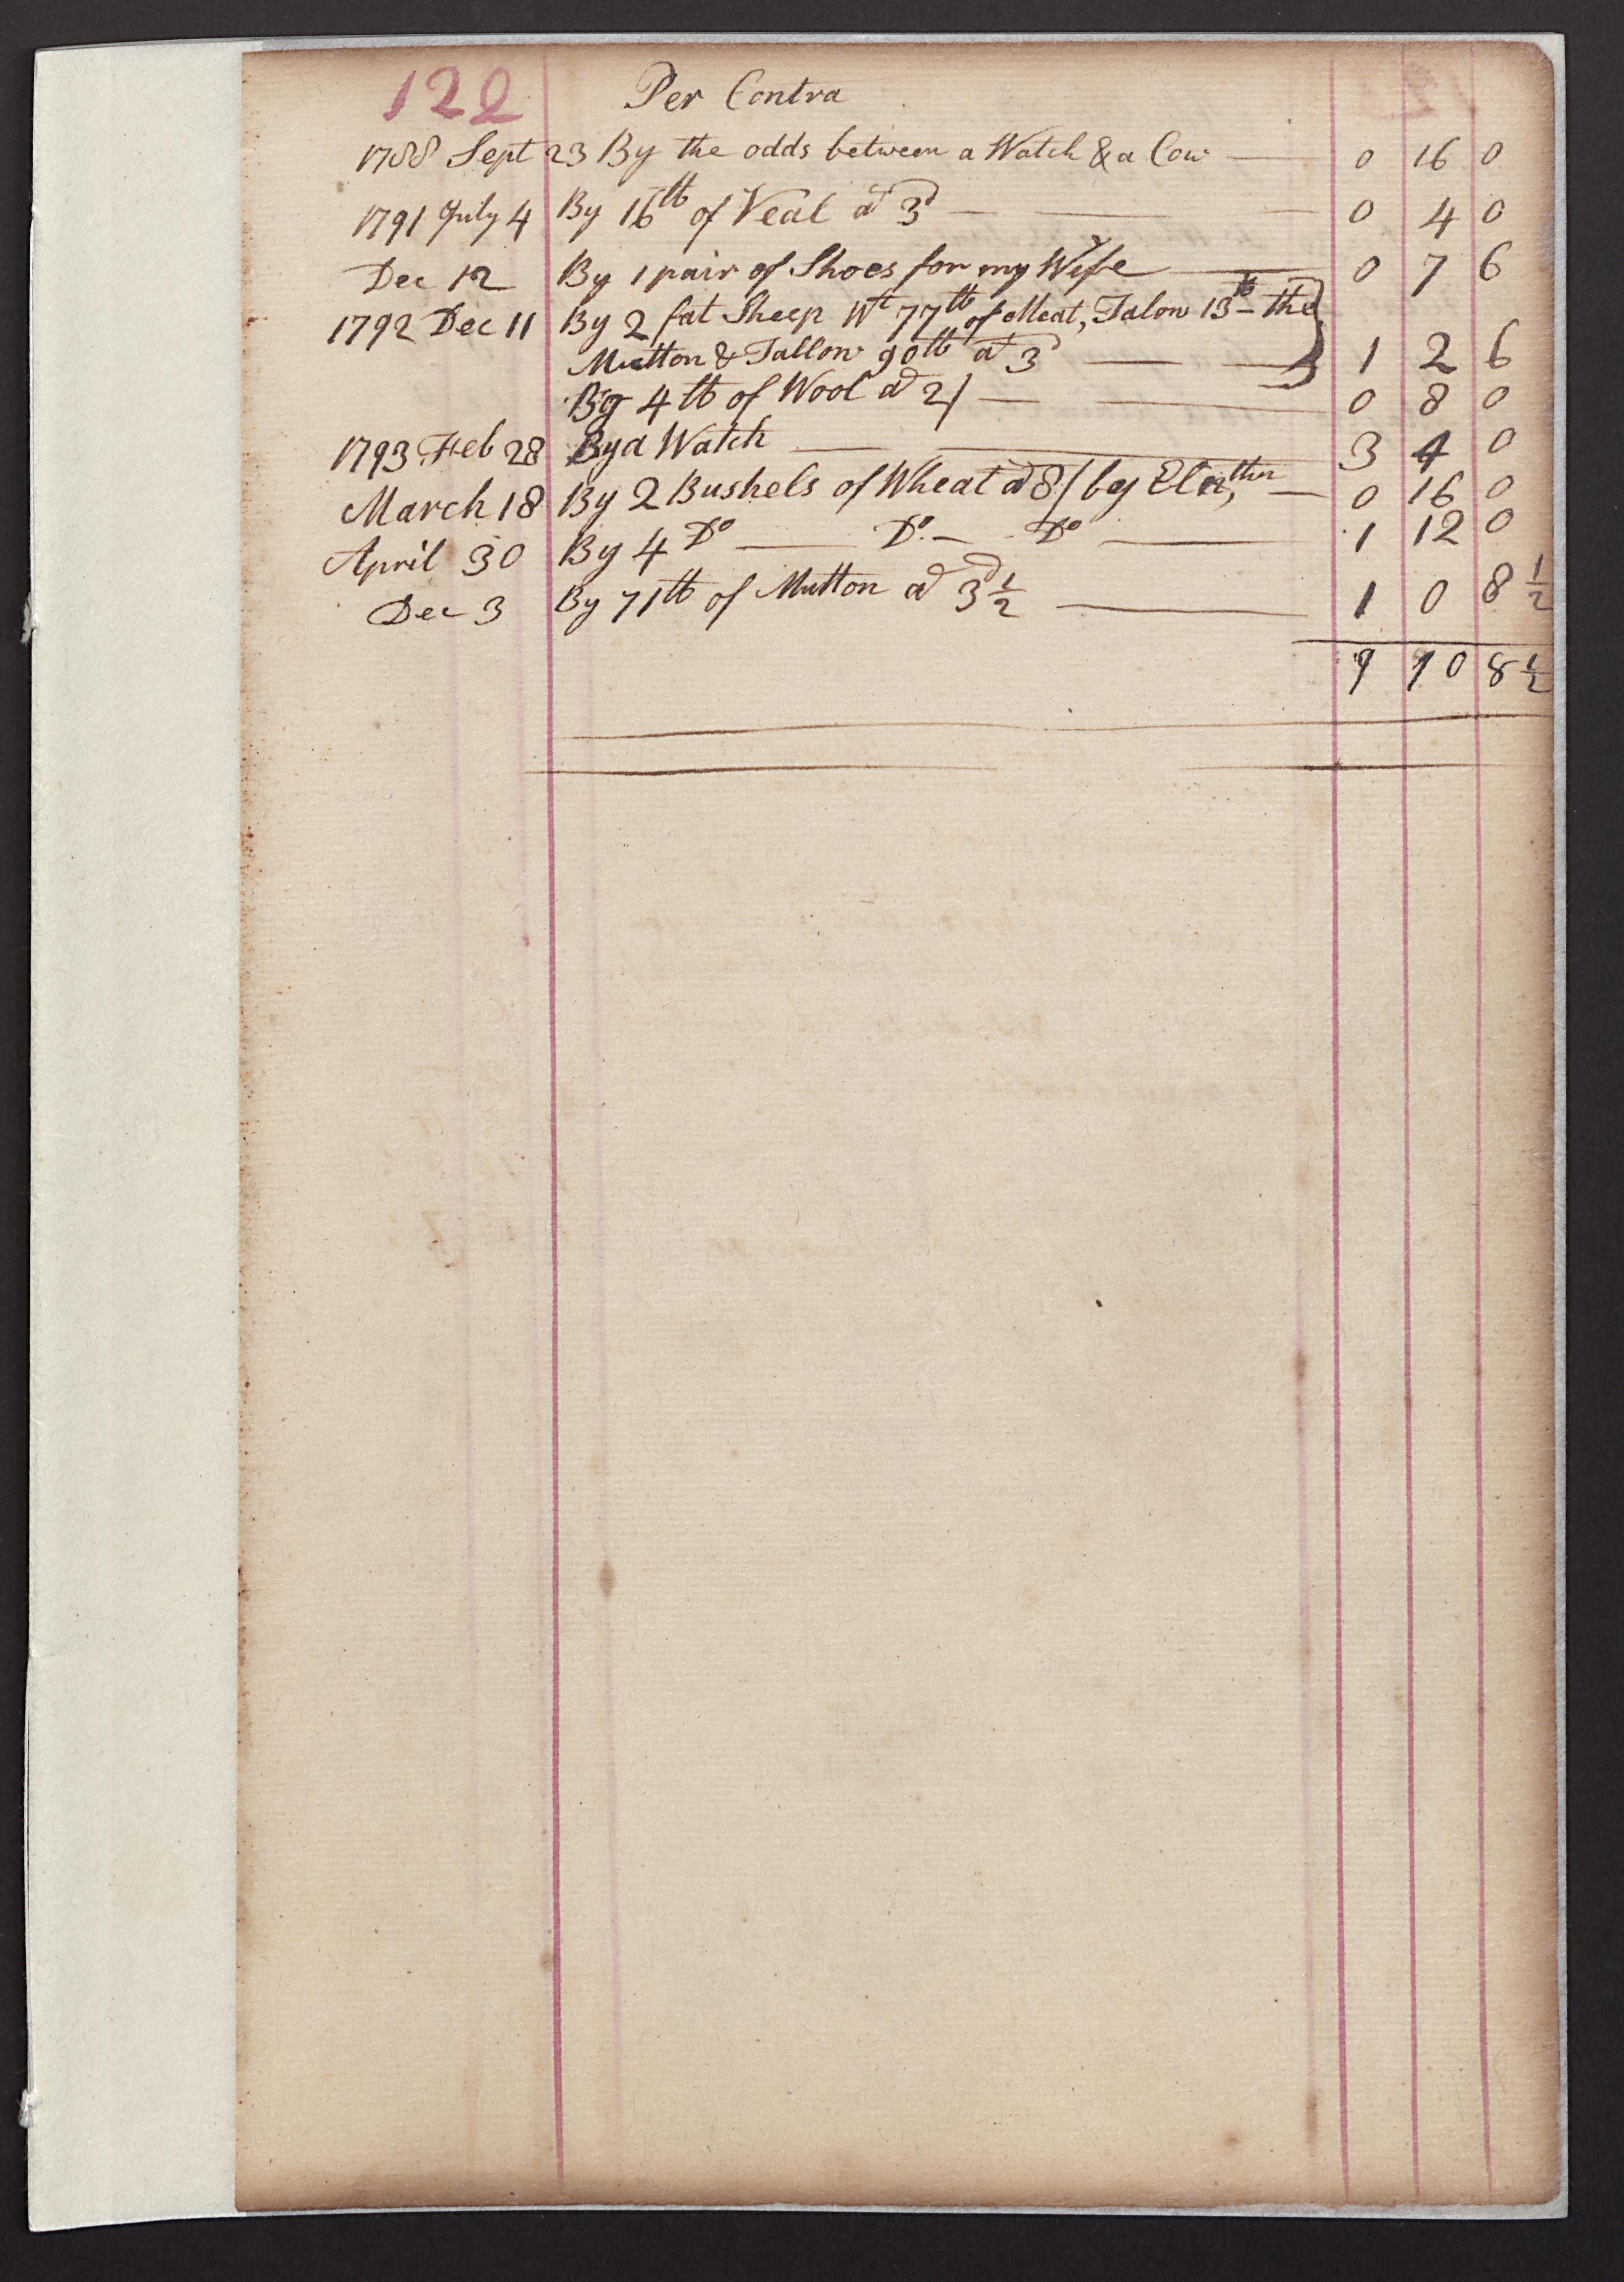 122 Per Contra
1788 Sept 23 By the odds between a Watch & a Cow 0 16 0
1791 July 4 By 16 lb of Veal a 3d 0 4 0
Dec 12 By 1 pair of Shoes for my Wife 0 7 6
1792 Dec 11 By 2 fat Sheep Wt 77 lb of Meat, Talow 13 lb the
Mutton & Tallow 90 lb at 3d 1 2 6
By 4 lb of Wool a 2/ 0 8 0
1793 Feb 28 By a Watch 3 4 0
March 18 By 2 Bushels of Wheat a 8/ by 0 16 0
April 30 By 4 Do Do Do 1 12 0
Dec 3 By 71 lb of Mutton a 3d 1/2 1 0 8 1/2
9 10 8 1/2